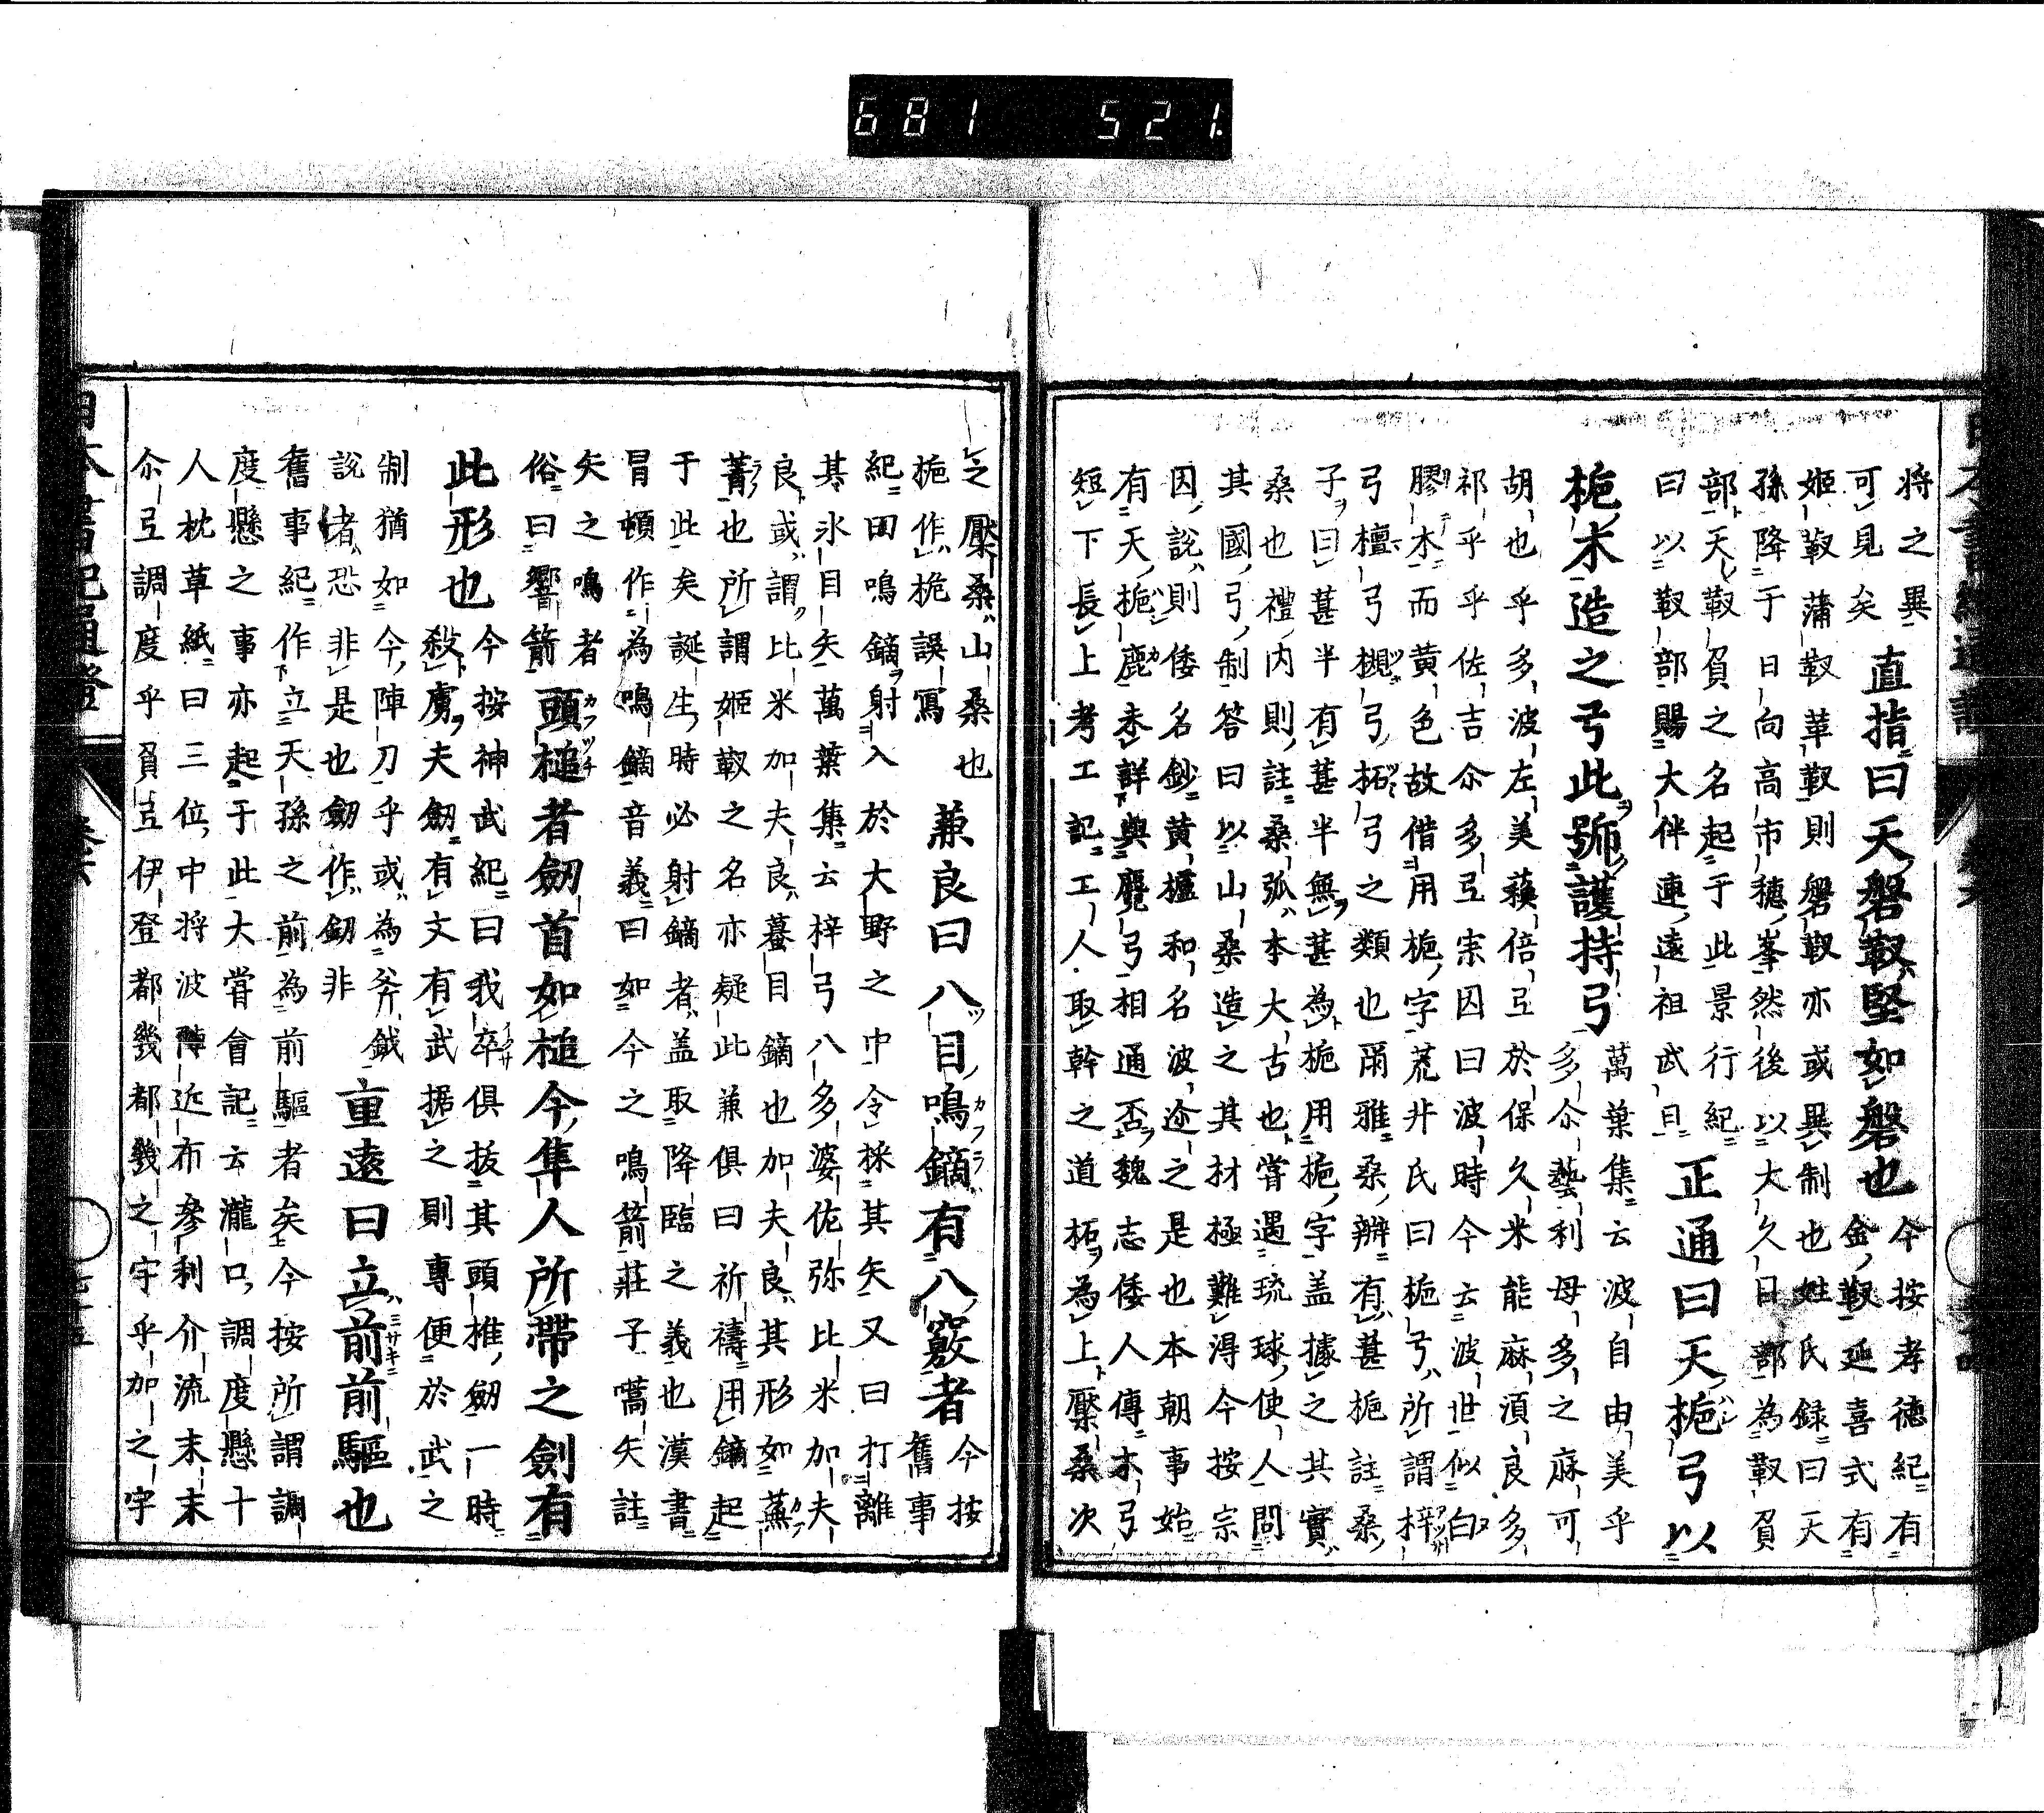 681 521
将之異
可見矣 直指曰天磐靫堅如磐也 今按孝徳紀有
金靫延喜式有
姬靫蒲靫革靫則磐靫亦或異制也姓氏録曰天
孫降于日向高市穗峯然後以大久日部為靫負
部天靫負之名起于此景行紀
曰以靫部賜大伴連遠祖武日 正通曰天梔弓以
梔木造之弓此號護持弓 萬葉集云波自由美乎
多尒藝利母多之麻可
胡也乎多波左美蘓倍弖於保久米能麻湏良多
祁乎乎佐吉尒多弖宗因曰波時今云波世似白
膠木而黄色故借用梔字荒井氏曰梔弓所謂梓
弓檀弓槻弓柘弓之類也爾雅桑辨有葚梔註桑
子曰葚半有葚半無葚為梔用梔字盖據之其實
桑也禮内則註桑弧本大古也甞遇琉球使人問
其國弓制答曰以山桑造之其材極難得今按宗
因說則倭名鈔黄櫨和名波迩之是也本朝事始
有天梔鹿未詳與麑弓相通否魏志倭人傳木弓
短下長上考工記工人取幹之道柘為上檿桑次
之檿桑山桑也
梔作桅誤寫 兼良曰八目鳴鏑有八竅者 今按
舊事
紀田鳴鏑射入於大野之中令採其矢又曰打離
其氷目矢萬葉集云梓弓八多婆佐弥比米加夫
良或謂比米加夫良蟇目鏑也加夫良其形如蕪
菁也所謂姬靫之名亦疑此兼俱曰祈禱用鏑起
于此矣誕生時必射鏑者盖取降臨之義也漢書
冒頓作為鳴鏑音義曰如今之鳴箭莊子嚆矢註
矢之鳴者
俗曰響箭 頭槌者劒首如槌今隼人所帶之劍有
此形也 今按神武紀曰我卒俱抜其頭椎劒一時
殺虜夫劒有文有武据之則專便於武之
制猶如今陣刀乎或為斧鉞
說者恐非是也劒作釼非 重遠曰立前前驅也
舊事紀作立天孫之前為前驅者矣今按所謂調
度懸之事亦起于此大甞會記云瀧口調度懸十
人枕草紙曰三位中将波陣近布參利介流末末
尒弖調度乎負弖伊登都幾都幾之宇乎加之宇